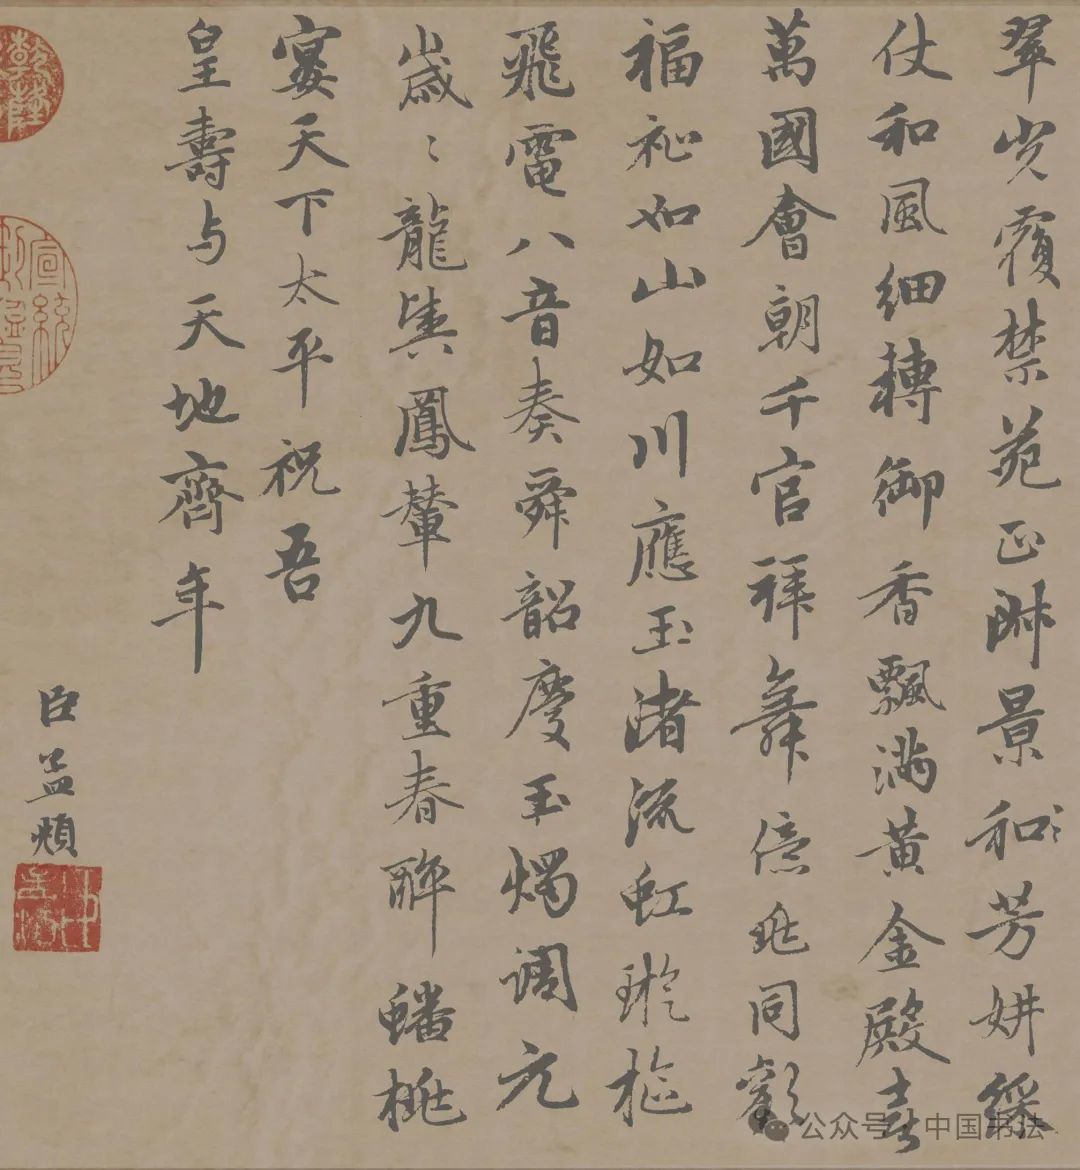 翠光覆禁苑正淑景和芳妍綵
仗和風細轉御香飄滿黃金殿喜
萬國會朝千官拜舞億兆同歡
福祉如山如川應玉渚流虹璇樞
飛電八音奏舜韶慶玉燭調元
歲〻龍輿鳳輦九重春醉蟠桃
宴天下太平祝吾
皇壽与天地齊年
臣孟頫
公众号·中国书法